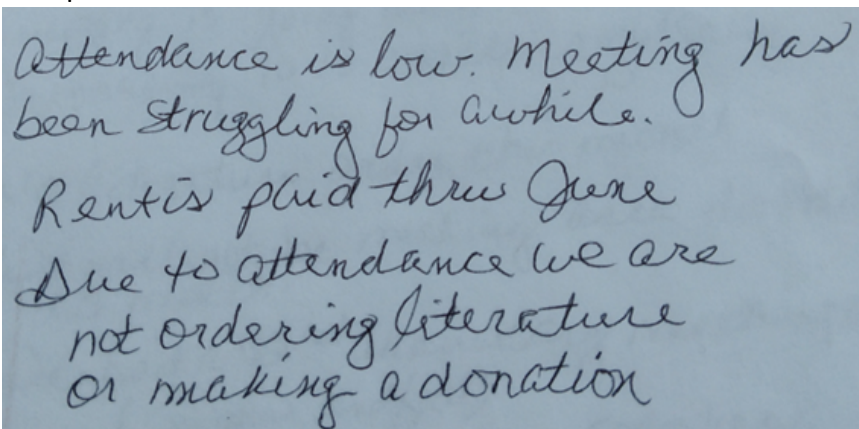 Attendance is low. Meeting has
been struggling for awhile.
Rent is paid thru June
Due to attendance we are
not ordering literature
or making a donation